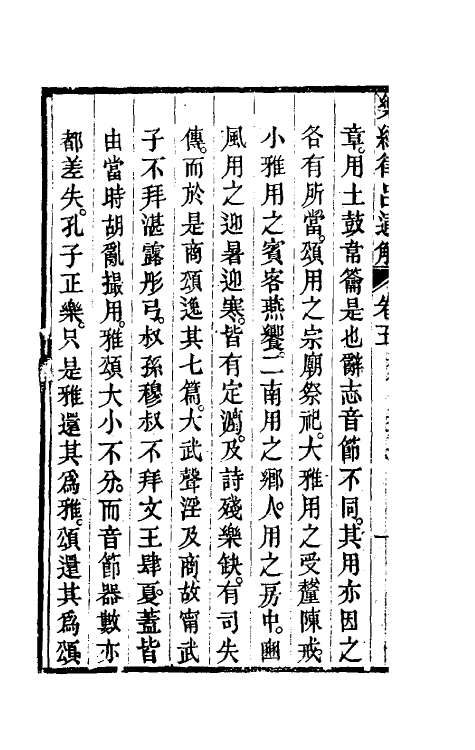 樂經律呂通解 卷五
章。用土鼓葦籥是也。辭志音節不同。其用亦因之
各有所當。頌用之宗廟祭祀。大雅用之受釐陳戒。
小雅用之賓客燕饗。二南用之鄉人。用之房中。豳
風用之迎暑迎寒。皆有定
及詩殘樂缺。有司失
傳。而於是商頌逸其七篇。大武聲淫及商。故甯武
子不拜湛露彤弓。叔孫穆叔不拜文王肆夏。蓋皆
由當時胡亂撮用。雅頌大小不分。而音節器數亦
都差失。孔子正樂。只是雅還其爲雅。頌還其爲頌